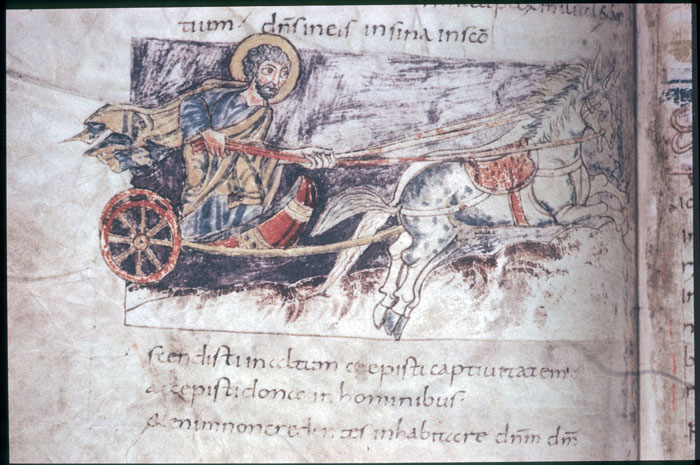 tium· dn̄s in eis in sina in sc̄o
scendisti in altum cepisti captiuitatem·
accepisti dona in hominibus·
&enim non credentes inhabitare dn̄m dm̄